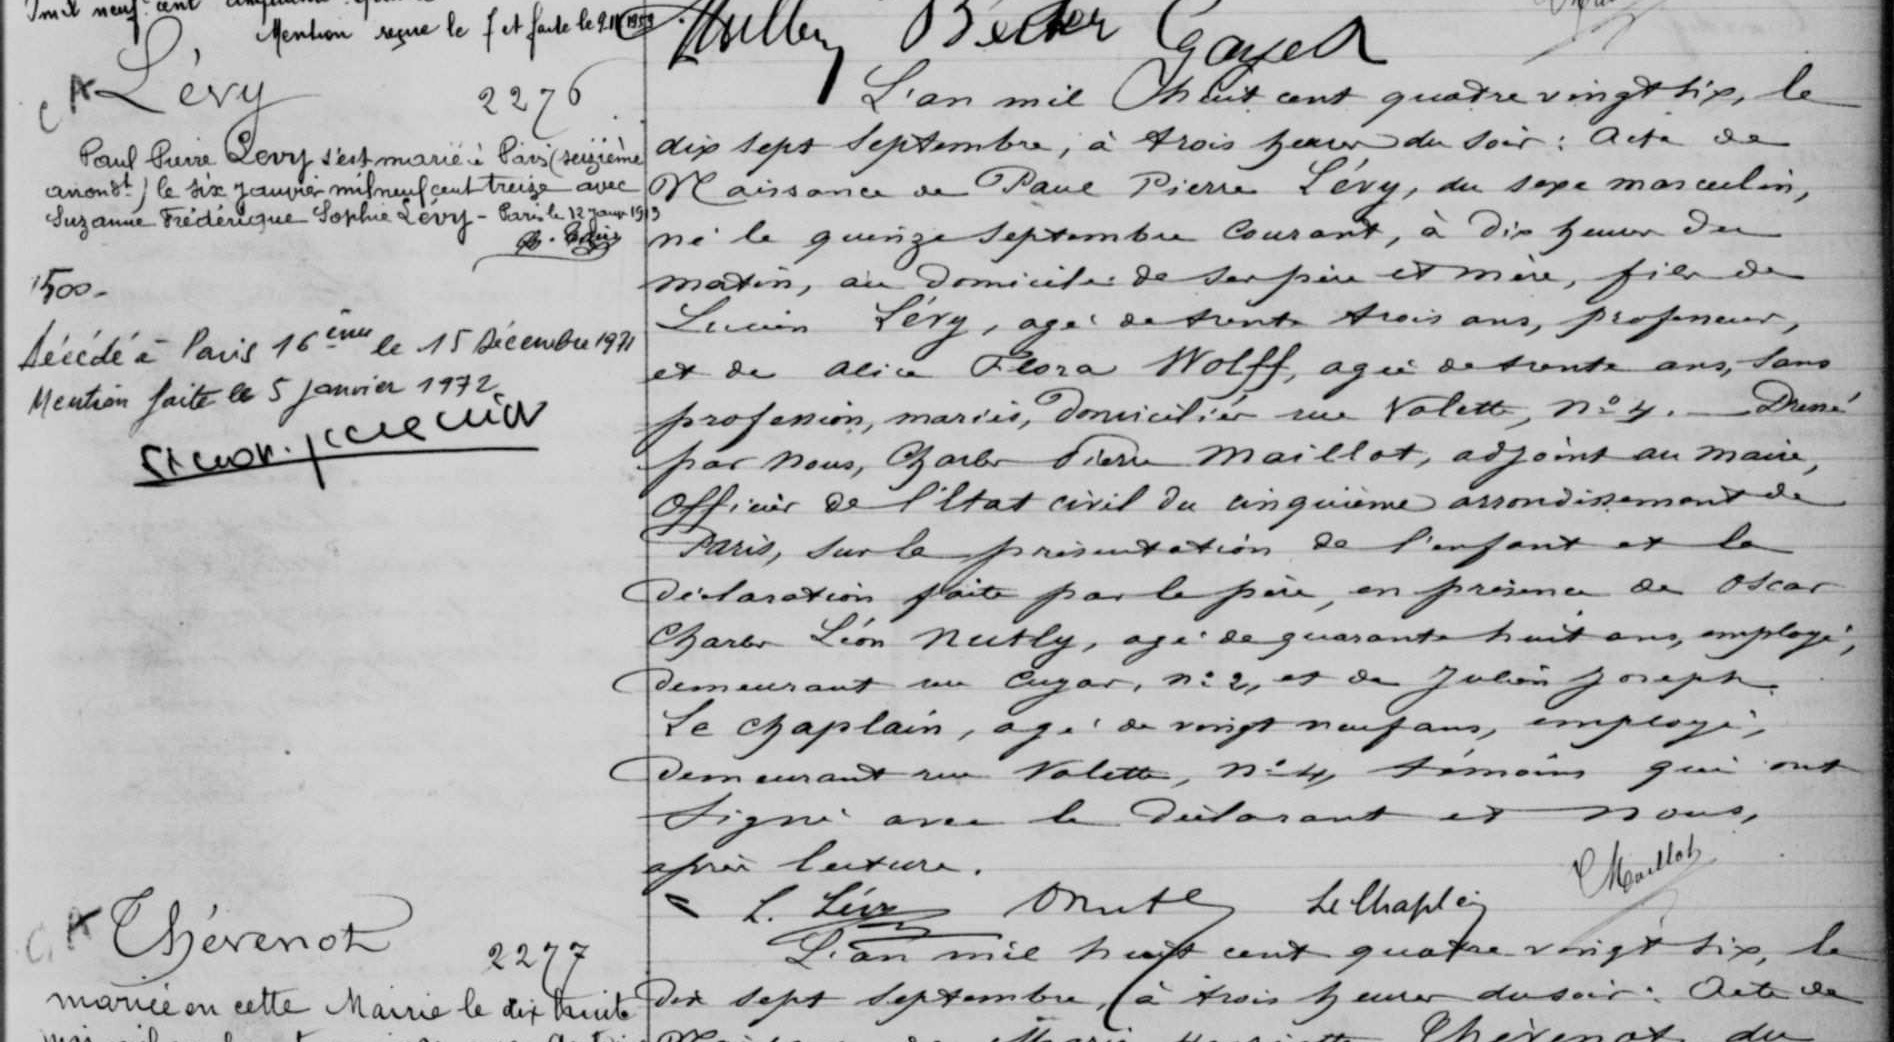 Mention reçue le 7 et faite le
Lévy
2276
Paul Pierre Levy s'est marié à Paris (seizième
arrondt) le six janvier mil neuf cent treize avec
Suzanne Frédérique Sophie Lévy - Paris le 12 janv 1913
1500-
Décédé à Paris 16ème le 15 Décembre 1971
Mention faite le 5 janvier 1972
L'an mil huit cent quatre vingt six, le
dix sept septembre, à trois heures du soir : Acte de
Naissance de Paul Pierre Lévy, du sexe masculin,
né le quinze septembre courant, à dix heures du
matin, au domicile de ses père et mère, fils de
Lucien Lévy, agé de trente trois ans, professeur,
et de Alice Flora Wolff, agée de trente ans, sans
profession, mariés, domiciliés rue Valette, no 4. — Dressé
par nous, Charles Pierre Maillot, adjoint au maire,
officier de l'état civil du cinquième arrondissement de
Paris, sur la présentation de l'enfant et la
déclaration faite par le père, en présence de Oscar
Charles Léon Nutly, agé de quarante huit ans, employé,
demeurant rue Cujas, no 2, et de Julien Joseph
Le Chaplain, agé de vingt neuf ans, employé,
demeurant rue Valette, no 4, témoins qui ont
signé avec le déclarant et nous,
après lecture.
Maillot
L. Lévy
LeChaplain
Thévenot
2277
mariée en cette Mairie le dix huit
L'an mil huit cent quatre vingt six, le
dix sept septembre, à trois heures du soir : Acte de
Thévenot, du